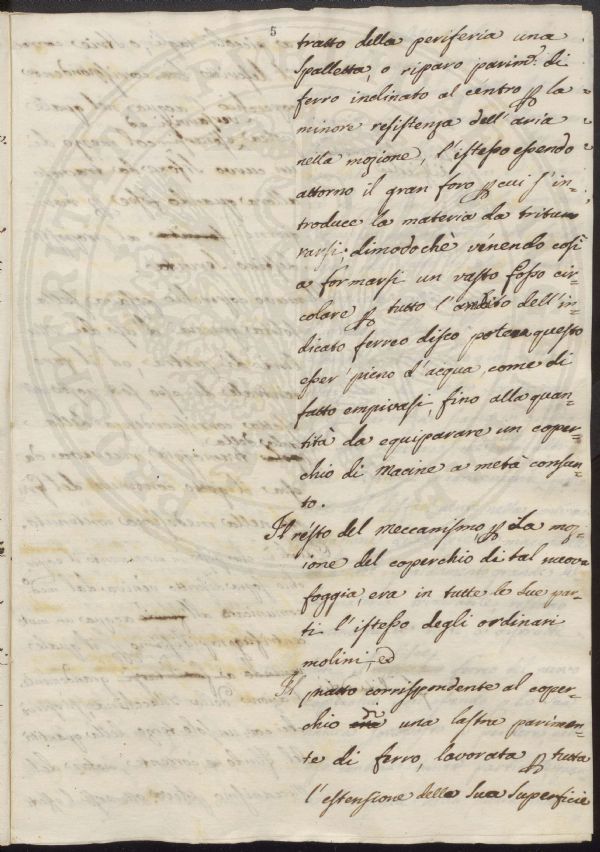 5
tratto della periferia una
spalletta, o riparo parim.e di
ferro inclinato al centro p la
minore resistenza dell'aria
nella mozione, l'istesso essendo
attorno il gran foro p cui s'in=
troduce la materia da tritu
rarsi; dimodochè venendo così
a formarsi un vasto fosso cir=
colare p tutto l'ambito dell'in=
dicato ferreo disco potea questo
esser pieno d'acqua come di
fatto empivasi, fino alla quan=
tità da equiparare un coper=
chio di macine a metà consun=
to.
Il resto del meccanismo, p la mo=
zione del coperchio di tal nuova
foggia, era in tutte le sue par=
ti l'istesso degli ordinari
molini, ed
Il piatto corrispondente al coper=
chio di una lastra parimen=
te di ferro, lavorata p tutta
l'estensione della sua superficie